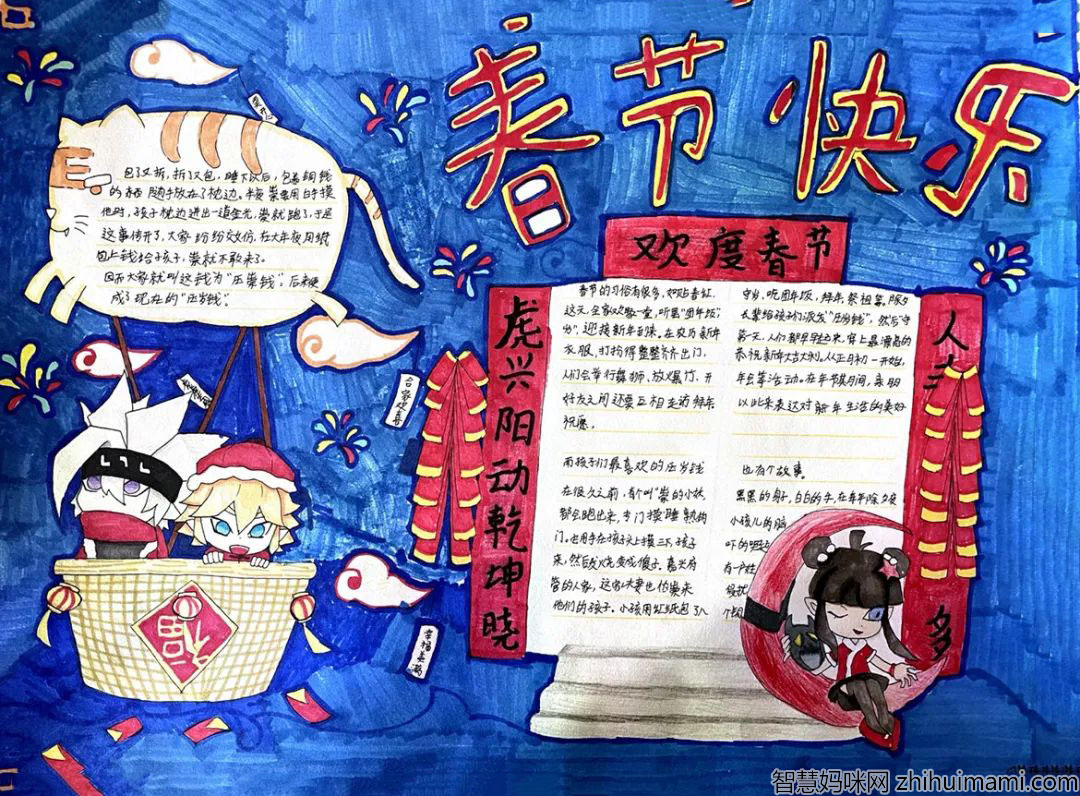 春节快乐
欢度春节
虎兴阳动乾坤晓
人
多
包了又拆，拆了又包，睡下以后，包着铜钱
的 随手放在了枕边。半夜 祟要用白手摸
他时，孩子枕边迸出一道金光，祟就跑了，于是
这事传开了，大家纷纷效仿，在大年夜用红
包上钱给子孩子，祟就不敢来了。
因而大家就叫这钱为"压祟钱"。后来便
成了现在的"压岁钱"。
春节的习俗有很多，如贴春让，
这天，全家欢聚一堂，听里"团年饭"
，迎接新年到来，在农历新年
衣服，打扮得整整齐齐出门，
人们会举行舞狮、放爆竹，开
好友之间还要互相走访拜年
祝愿。
而孩子们最喜欢的压岁钱
在很久之前，有个叫"祟的小妖
都会跑出来，专门摸睡熟的
门。也用手在孩子头上摸三下，孩子
来，然后发烧变成傻子，嘉兴府
管的人家，这家夫妻也怕祟来
他们的孩子。小孩用红纸包了八
守岁，吃团年饭，拜年祭祖等，除夕
长辈给孩子们派发"压岁钱"，然后守
第一天，人们都早早起来，穿上最漂亮的
恭祝新年大吉大利。从正月初一开始，
年会等活动。在年节其月间，亲朋
以此来表达对新年生活的美好
也有个故事。
黑黑的身子，白白的手，在每年除夕夜
小孩儿的脑
吓的
有一户姓
合家欢喜
幸福美满
福
智慧妈咪网 zhihuimami.com